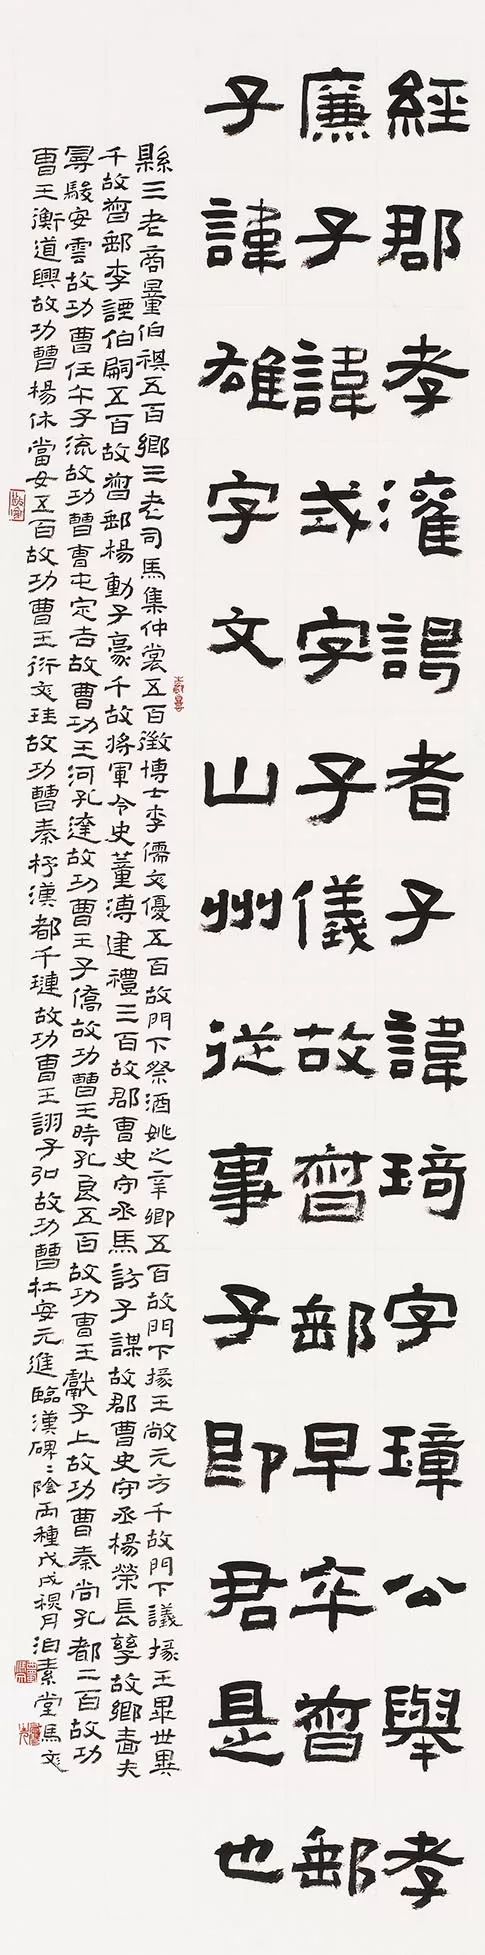 經郡孝灌謁者子諱琦字璋公舉孝
廉子諱或字子儀故督郵早卒督郵
子諱雄字文山州從事子即君是也
縣三老商量伯祺五百鄉三老司馬集仲裳五百徵博士李儒文優五百故門下祭酒姚之辛卿五百故門下掾王敞元方千故門下議掾王畢世異
千故督郵李諲伯嗣五百故督郵楊動子豪千故將軍令史董溥建禮三百故郡曹史守丞馬訪子謀故郡曹史守丞楊榮長孳故鄉嗇夫
駿安雲故功曹任午子流故功曹曹屯定吉故曹功王河孔達故功曹王子僑故功曹王時孔良五百故功曹王獻子上故功曹秦尚孔都二百故功
曹王衡道興故功曹楊休當女五百故功曹王衍文珪故功曹秦杼漢都千璉故功曹王詡子弘故功曹杜安元進臨漢碑碑陰兩種戊戌禊月泊素堂馬文